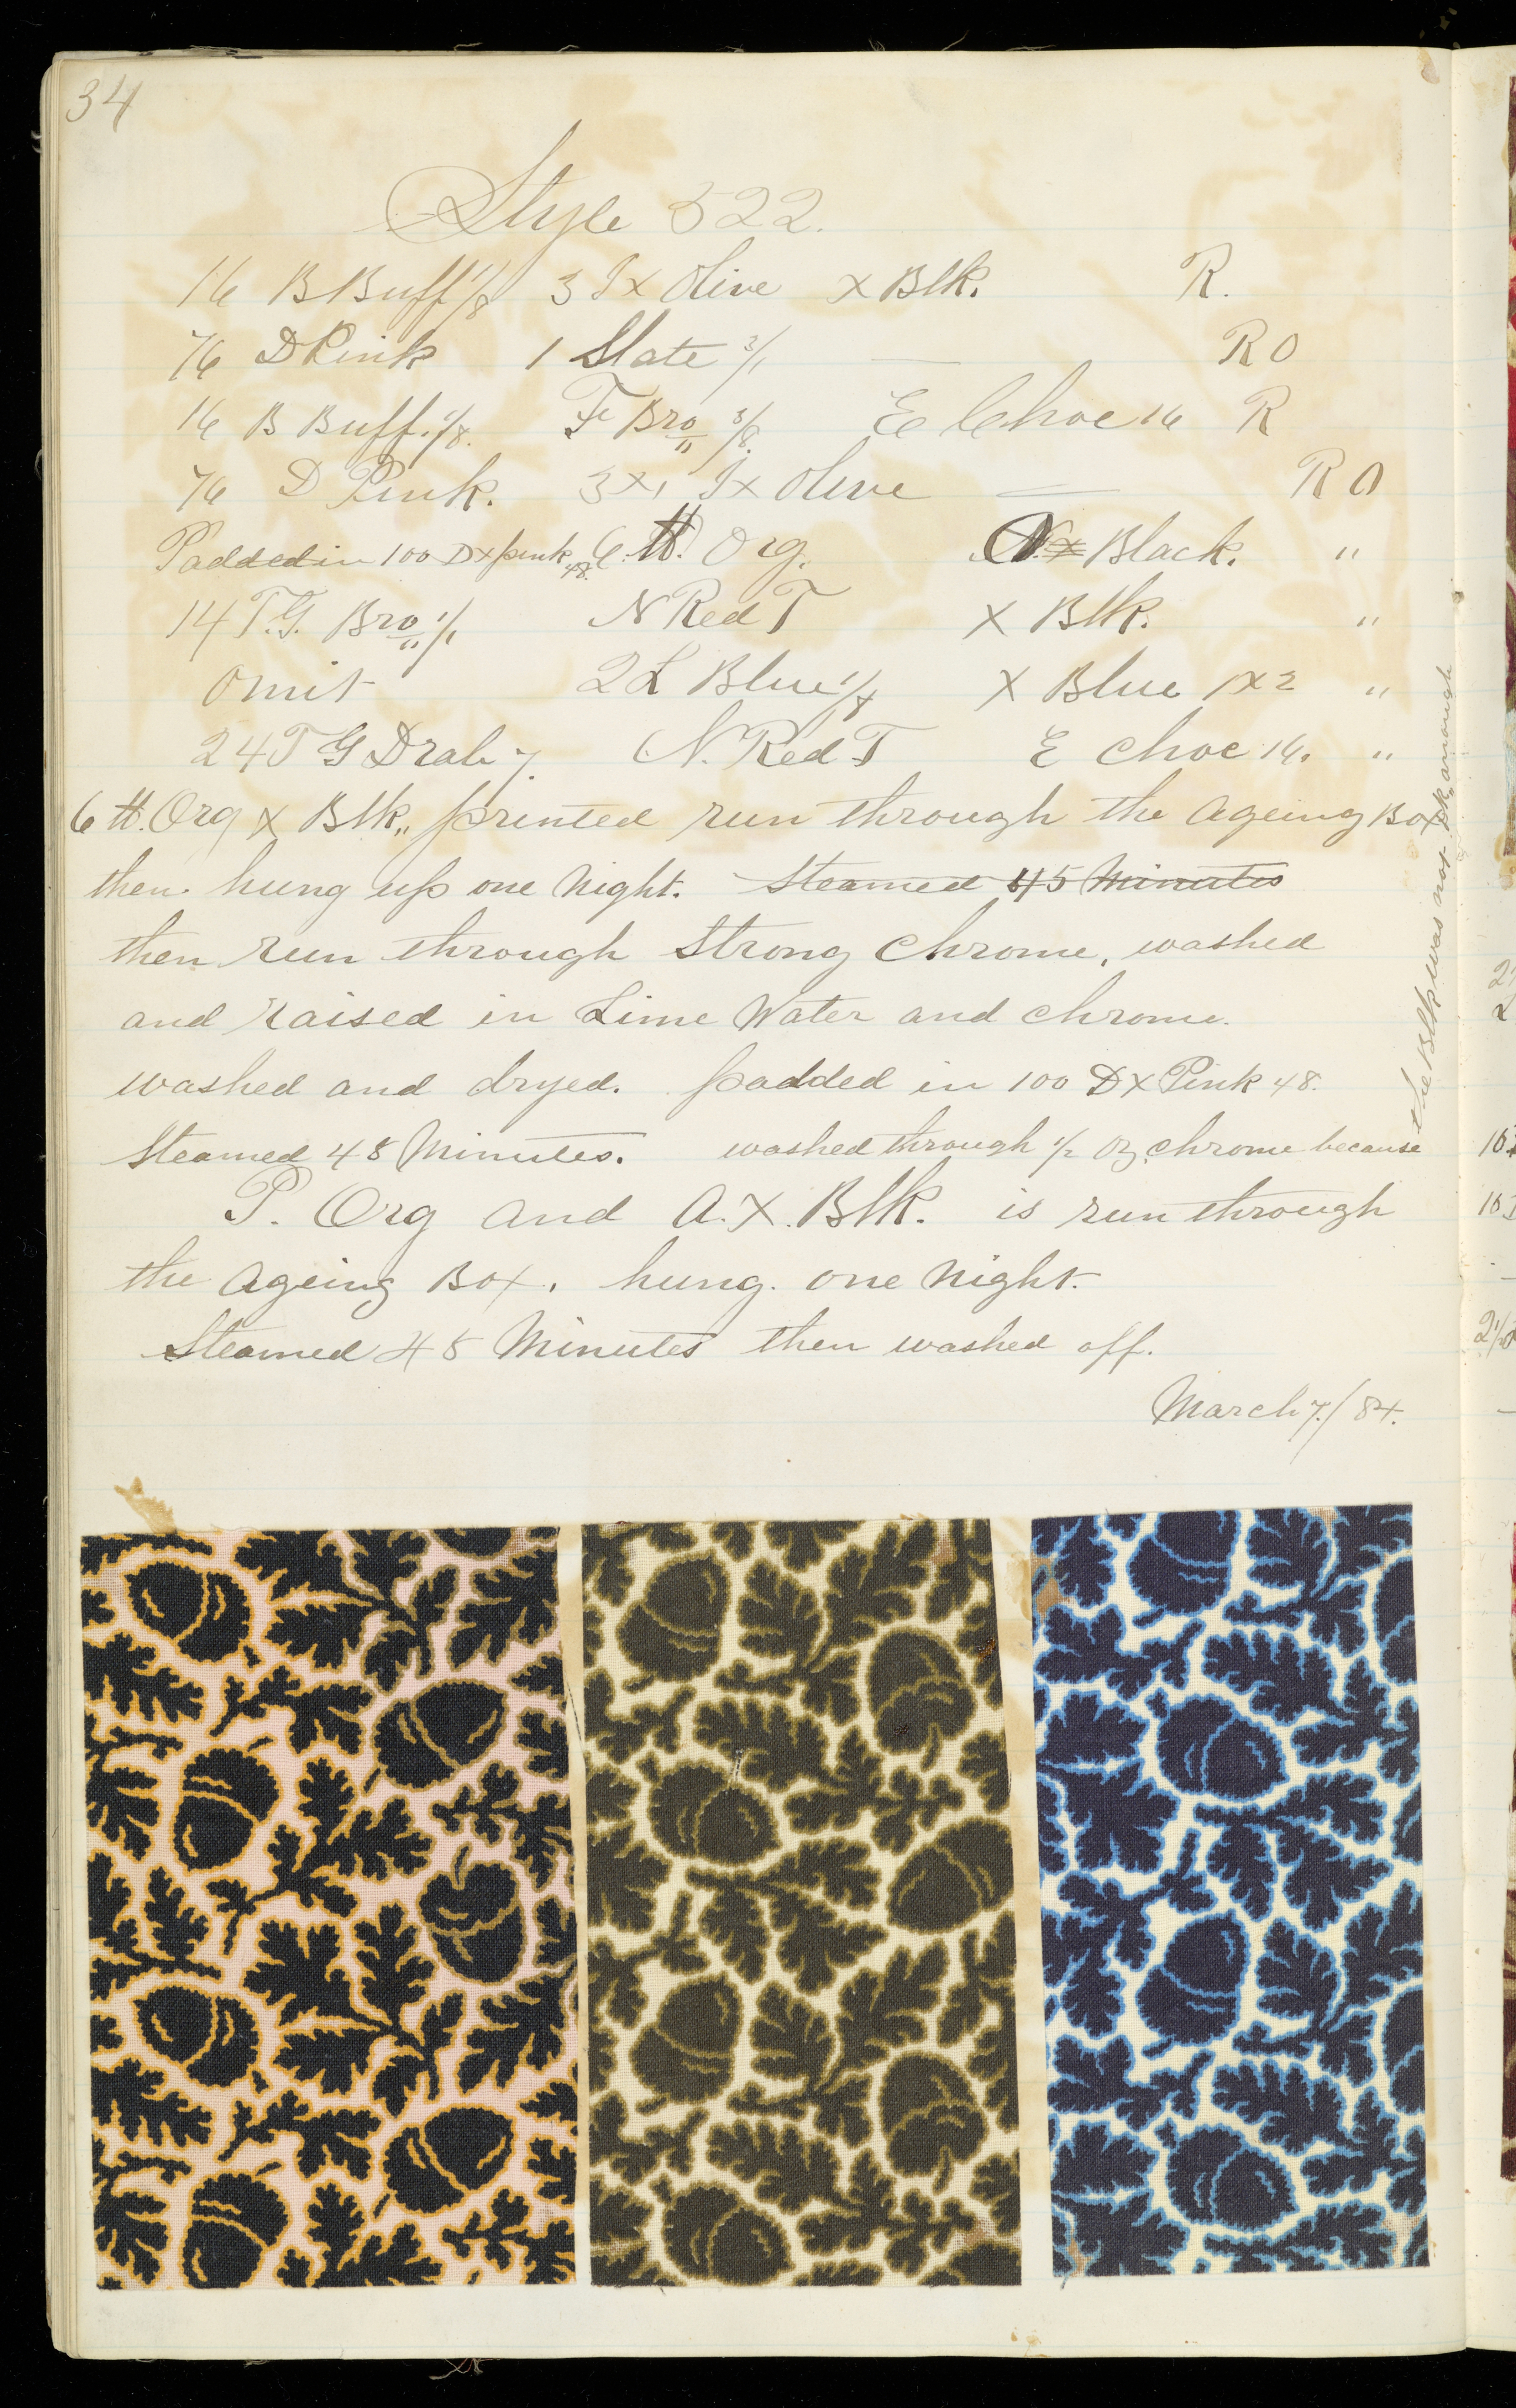 34
Style 522.
16 B Buff 1/8 3 Ix Olive x Blk. R.
76 D Pink 1 Slate 3/1 — R O
16 B Buff. 1/8. F Bro 3/8. E Choc 16 R
76 D Pink. 3x1 Ix Olive — R O
Padded in 100 Dx pink 48. 6 tt. Org. x Black. "
14 T.G. Bro 1/1 N Red T X Blk. "
Omit 2 L Blue 1/8 X Blue 1x2 "
24 T G Drab 7. N. Red T E Choc 16. "
6 tt. Org x Blk,, printed run through the Ageing Box
then hung up one Night. Steamed 45 Minutes
then run through Strong Chrome, washed
and raised in Lime Water and Chrome.
washed and dryed. padded in 100 Dx Pink 48.
Steamed 48 Minutes. washed through 1/2 Oz. Chrome because
the Blk was not Blk anough
P. Org and A. X. Blk. is run through
the Ageing Box. hung. one Night.
Steamed 48 Minutes then washed off.
March 7./84.